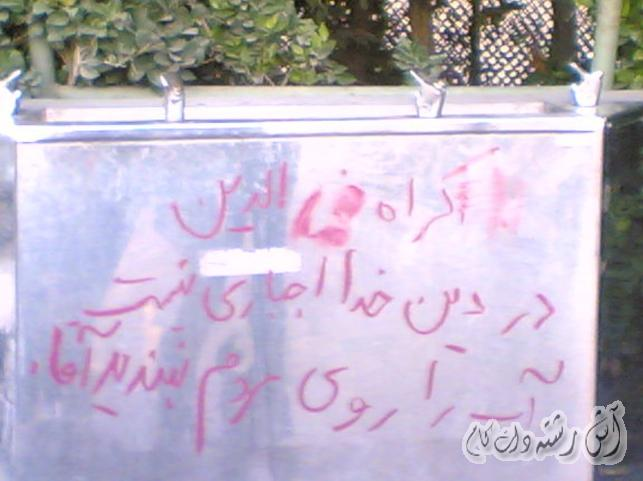 اکراه فی الدین
در دین خدا اجباری نیست
آب را روی مردم نبندید آقا.
آش رشته دات کام